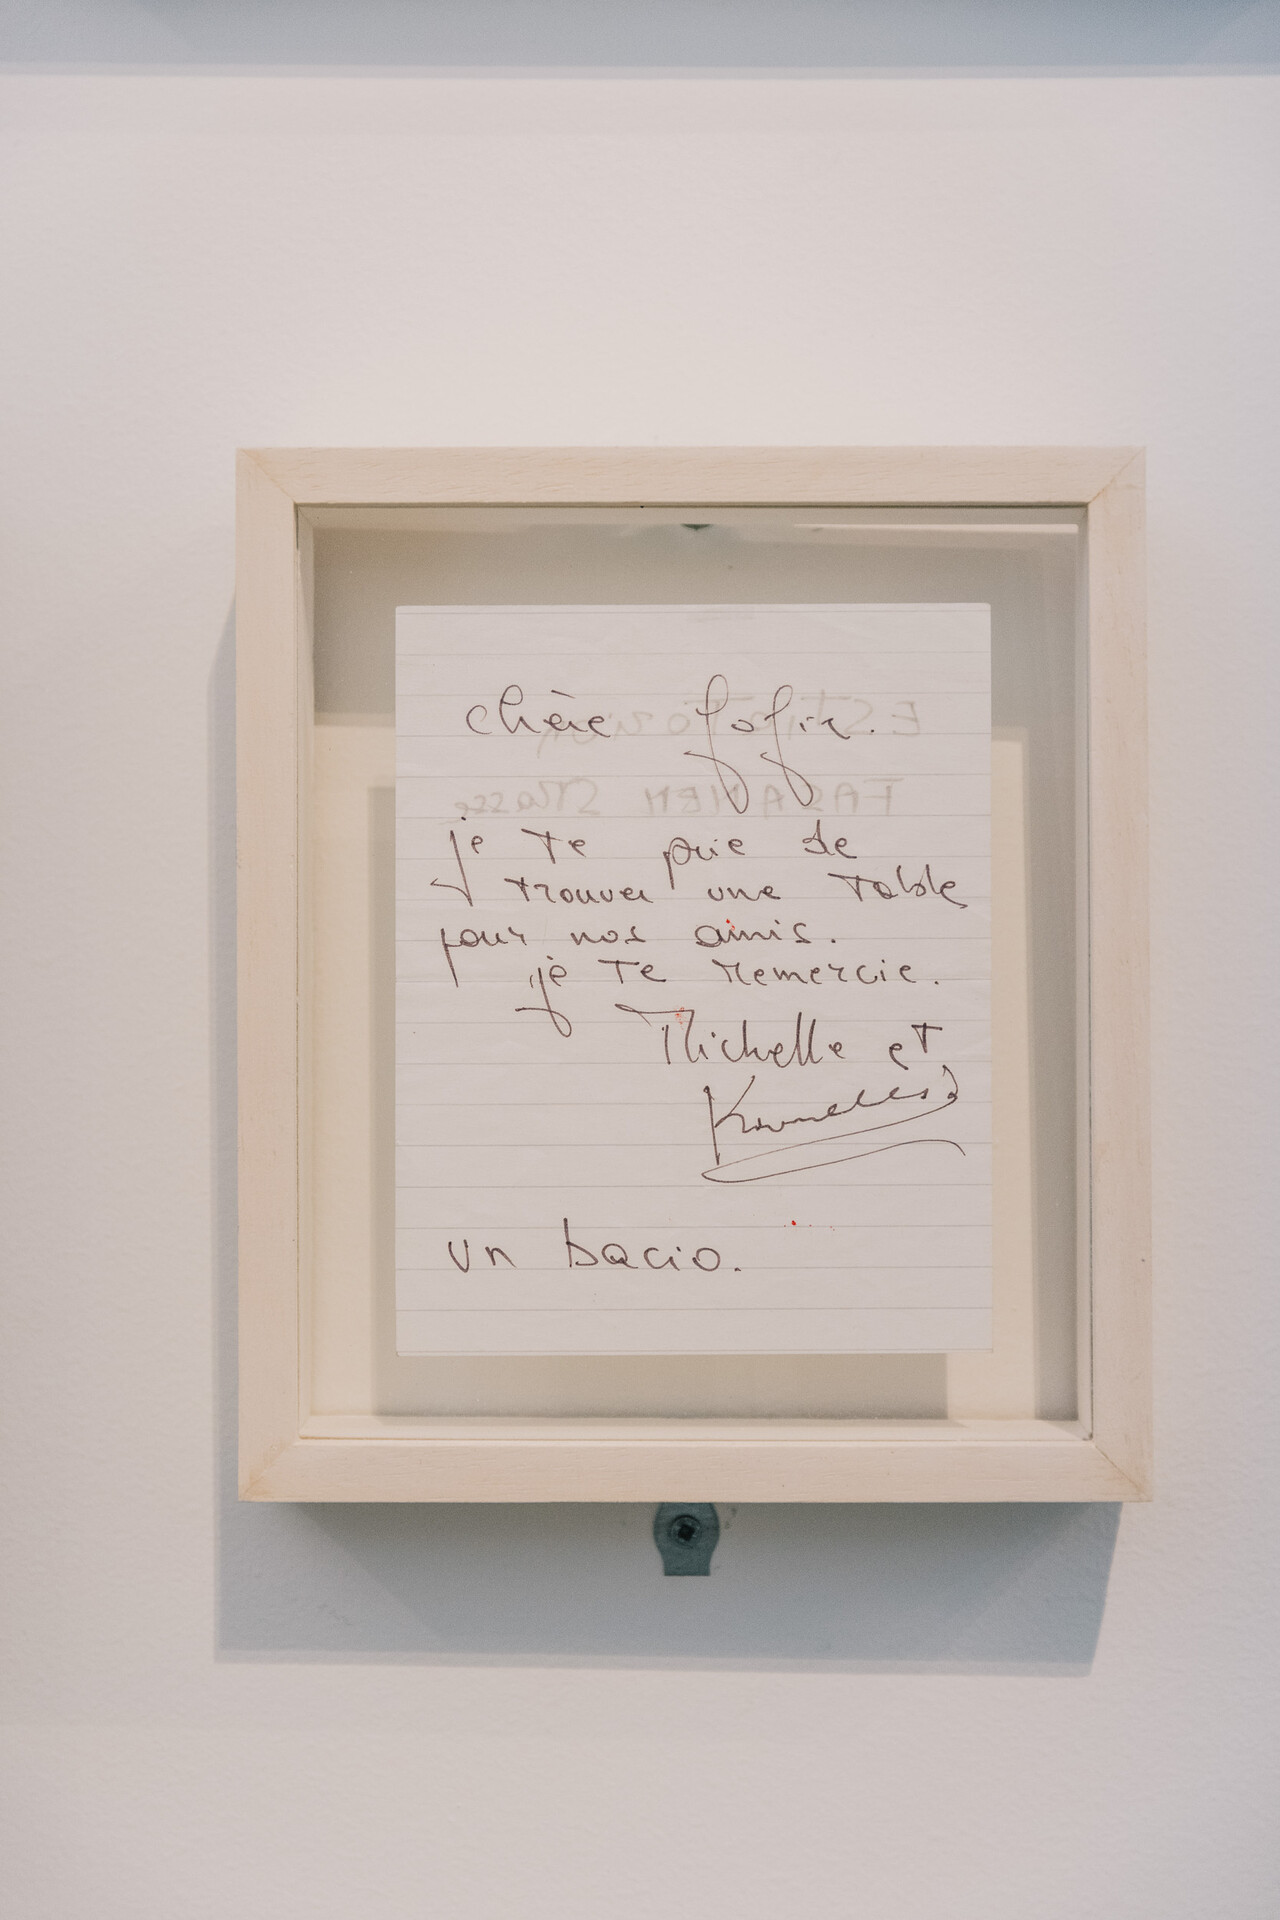 chère fofi.
je te prie de
trouver une table
pour nos amis.
je te remercie.
Michelle et
Kounellis
un bacio.
ESTIATORION
FASANEN Strasse